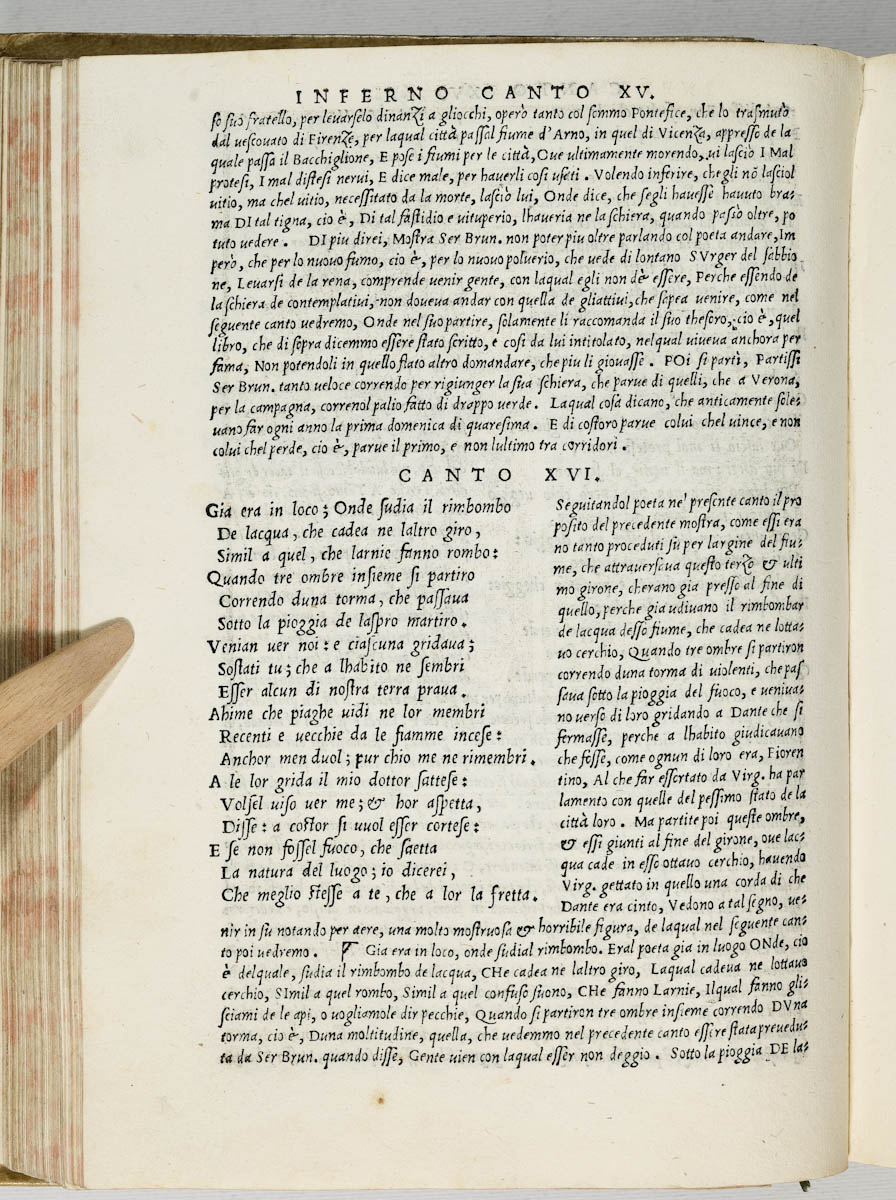 INFERNO CANTO XV.
so suo fratello, per levarselo dinanzi a gliocchi, operò tanto col sommo Pontefice, che lo trasmutò
dal vescovato di Firenze, per laqual città passal fiume d'Arno, in quel di Vicenza, appresso de la
quale passa il Bacchiglione, E pose i fiumi per le città, Ove ultimamente morendo, vi lasciò I Mal
protesi, I mal distesi nervi, E dice male, per haverli cosi usati. Volendo inferire, chegli nõ lasciol
vitio, ma chel vitio, necessitato da la morte, lasciò lui, Onde dice, che segli havesse havuto bra-
ma DI tal tigna, cio è, Di tal fastidio e vituperio, lhaveria ne la schiera, quando passò oltre, po
tuto vedere. DI piu direi, Mostra Ser Brun. non poter piu oltre parlando col poeta andare, Im
però, che per lo nuovo fumo, cio è, per lo nuovo polverio, che vede di lontano SUrger del sabbio-
ne, Levarsi de la rena, comprende venir gente, con laqual egli non dè essere, Perche essendo de
la schiera de contemplativi, non doveva andar con quella de gliattivi, che sapea venire, come nel
seguente canto vedremo, Onde nel suo partire, solamente li raccomanda il suo thesoro, cio è, quel
libro, che di sopra dicemmo essere stato scritto, e cosi da lui intitolato, nelqual viveva anchora per
fama, Non potendoli in quello stato altro domandare, che piu li giovasse. POi si partì, Partissi
Ser Brun. tanto veloce correndo per rigiunger la sua schiera, che parve di quelli, che a Verona,
per la campagna, correnol palio fatto di drappo verde. Laqual cosa dicano, che anticamente sole-
vano far ogni anno la prima domenica di quaresima. E di costoro parve colui chel vince, e non
colui chel perde, cio è, parve il primo, e non lultimo tra corridori.
CANTO XVI.
Gia era in loco; Onde sudia il rimbombo
De lacqua, che cadea ne laltro giro,
Simil a quel, che larnie fanno rombo:
Quando tre ombre insieme si partiro
Correndo duna torma, che passava
Sotto la pioggia de laspro martiro.
Venian ver noi: e ciascuna gridava;
Sostati tu; che a lhabito ne sembri
Esser alcun di nostra terra prava.
Ahime che piaghe vidi ne lor membri
Recenti e vecchie da le fiamme incese:
Anchor men duol; pur chio me ne rimembri.
A le lor grida il mio dottor sattese:
Volsel viso ver me; & hor aspetta,
Disse: a costor si vuol esser cortese:
E se non fossel fuoco, che saetta
La natura del luogo; io dicerei,
Che meglio stesse a te, che a lor la fretta.
Seguitandol poeta ne' presente canto il pro
posito del precedente mostra, come essi era
no tanto proceduti su per largine del fiu-
me, che attraversava questo terzo & ulti
mo girone, cherano gia presso al fine di
quello, perche gia udivano il rimbombar
de lacqua desso fiume, che cadea ne lotta-
vo cerchio, Quando tre ombre si partiron
correndo duna torma di violenti, che pas
sava sotto la pioggia del fuoco, e veniva-
no verso di loro gridando a Dante che si
fermasse, perche a lhabito giudicavano
che fosse, come ognun di loro era, Fioren
tino, Al che far essortato da Virg. ha par
lamento con quelle del pessimo stato de la
città loro. Ma partite poi queste ombre,
& essi giunti al fine del girone, ove lac-
qua cade in esso ottavo cerchio, havendo
Virg. gettato in quello una corda di che
Dante era cinto, Vedono a tal segno, ve-
nir in su notando per aere, una molto mostruosa & horribile figura, de laqual nel seguente can-
to poi vedremo. Gia era in loco, onde sudial rimbombo. Eral poeta gia in luogo ONde, cio
è delquale, sudia il rimbombo de lacqua, CHe cadea ne laltro giro, Laqual cadeva ne lottavo
cerchio, SImil a quel rombo, Simil a quel confuso suono, CHe fanno Larnie, Ilqual fanno gli-
sciami de le api, o vogliamole dir pecchie, Quando si partiron tre ombre insieme correndo DUna
torma, cio è, Duna moltitudine, quella, che vedemmo nel precedente canto essere stata prevedu-
ta da Ser Brun. quando disse, Gente vien con laqual esser non deggio. Sotto la pioggia DE la-